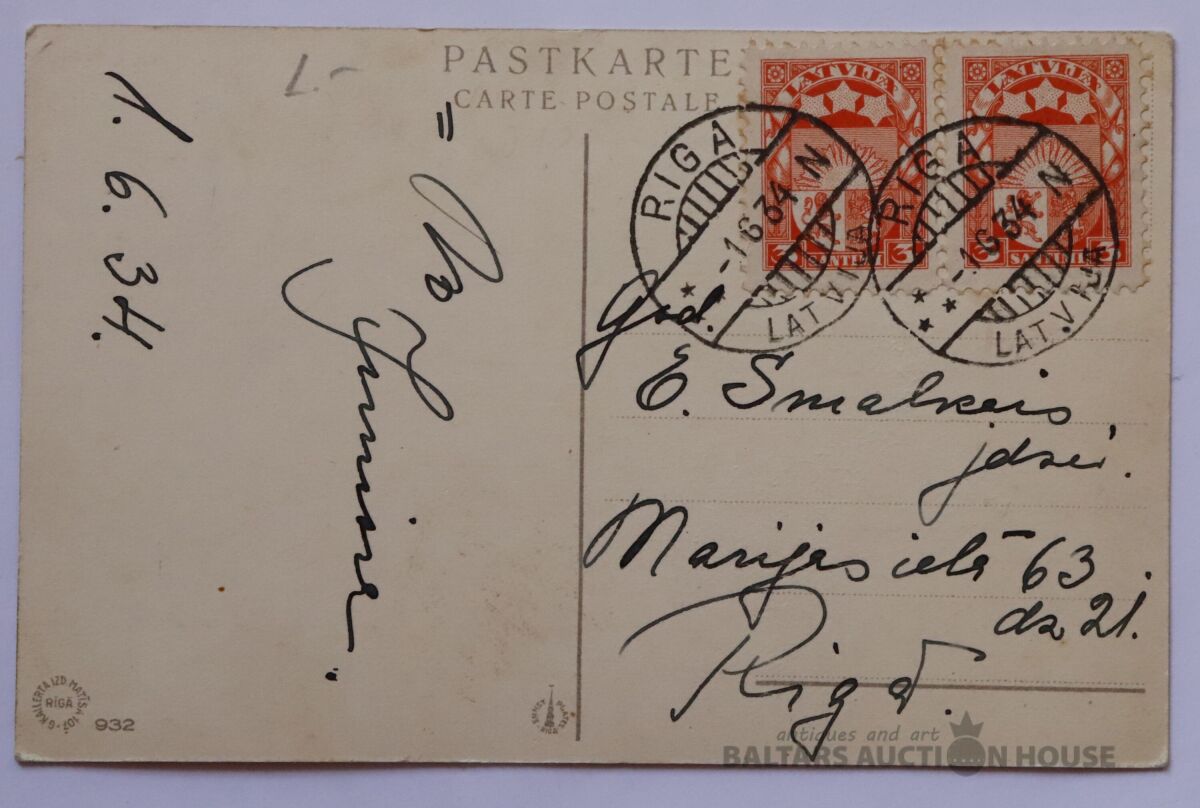 PASTKARTE
CARTE POSTALE
L.-
1. 6. 34.
LATVIJA
3 SANTIMI 3
LATVIJA
3 SANTIMI 3
RIGA
-1.6.34 N
LATVIJA
RIGA
-1.6.34 N
LATVIJA
God.
E. Smalkais
jdzei.
Marijas ielā 63
dz. 21.
Rīgā.
G. KALLERTA IZD. MATISA 107
RĪGĀ
932
antiques and art
BALTARS AUCTION HOUSE